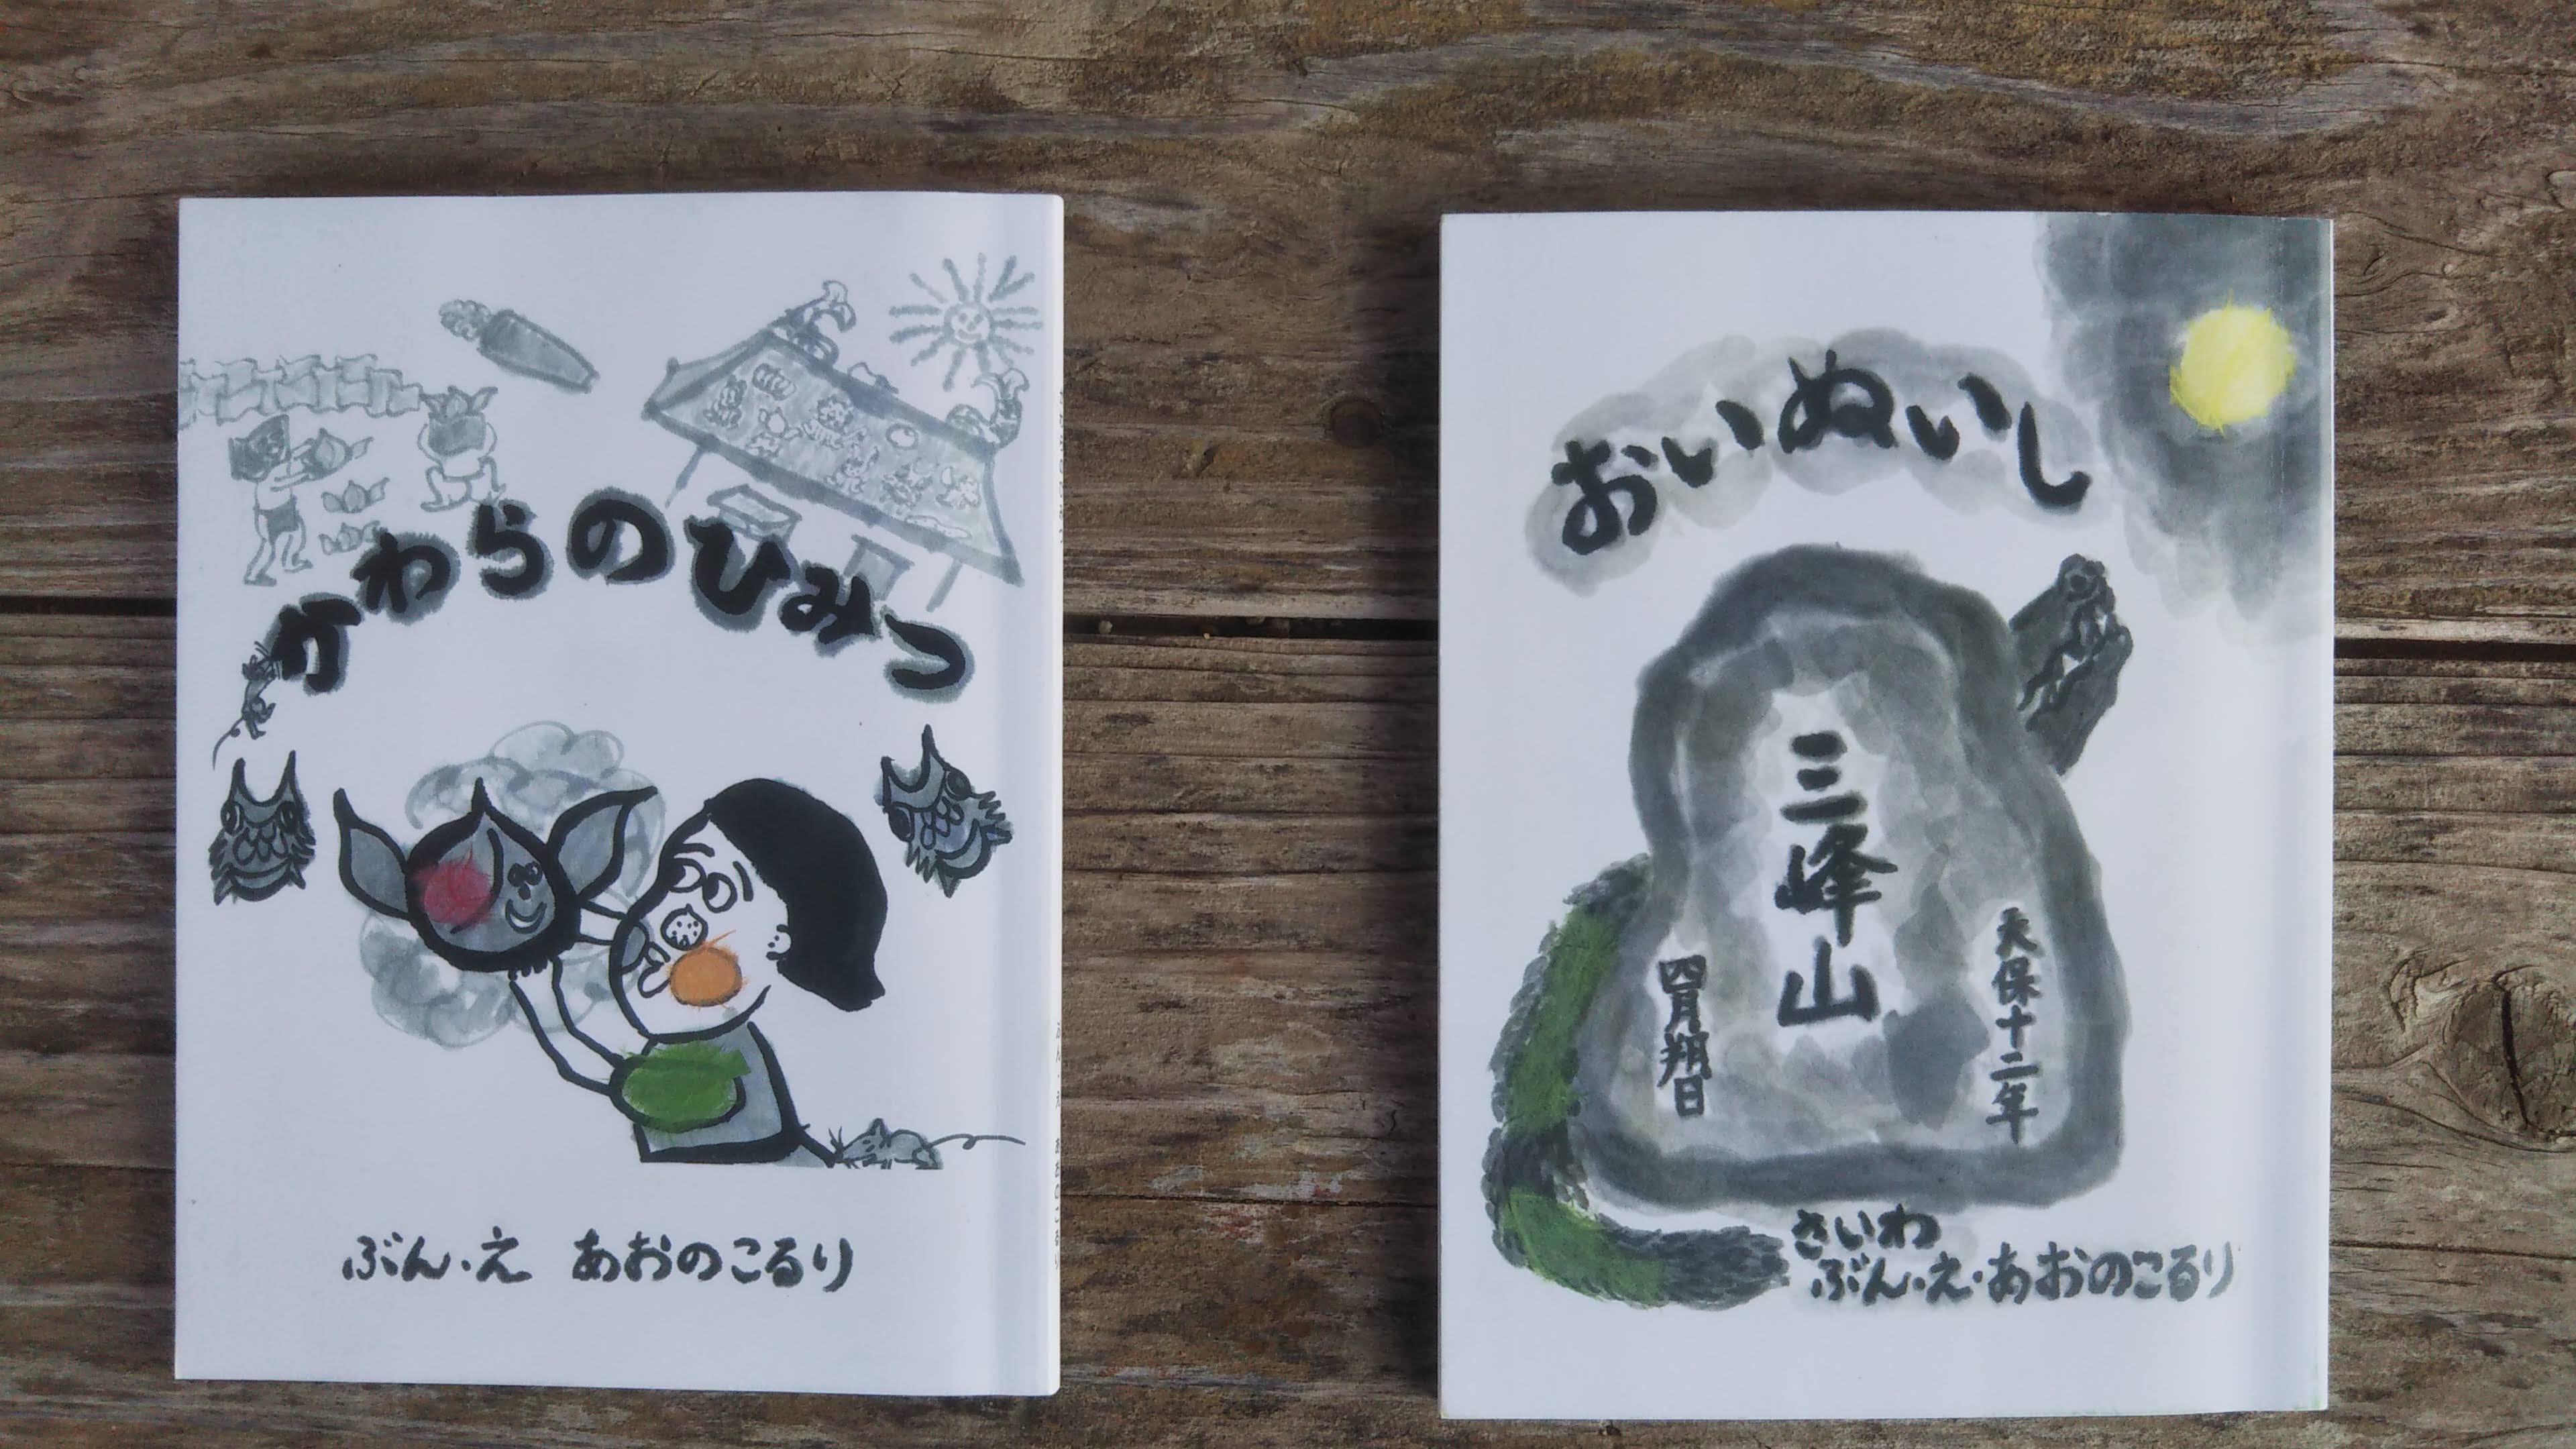 かわらのひみつ
ぶん・え あおのこるり
おいぬいし
三峰山
天保十二年
四月朔日
さいわ
ぶん・え・あおのこるり